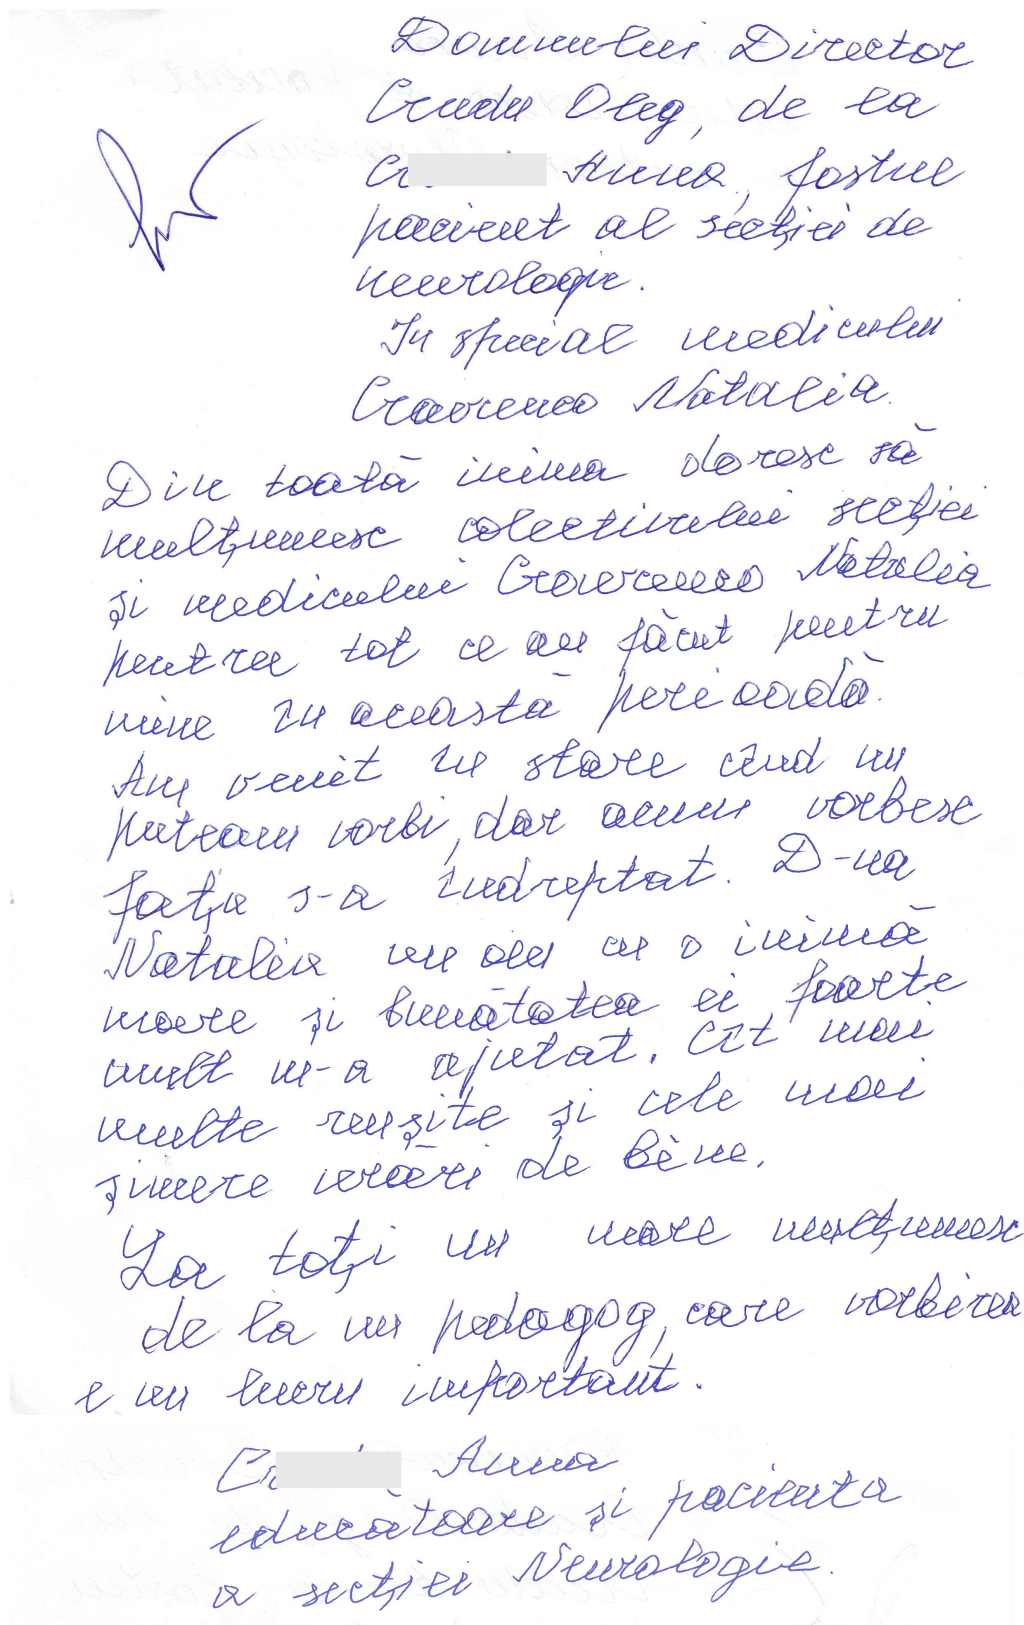 Domnului Director
Crudu Oleg, de la
Cr Anna, fostul
pacient al secției de
neurologie.
In special medicului
Cravcenco Natalia.
Din toată inima doresc să
mulțumesc colectivului secției
și medicului Cravcenco Natalia
pentru tot ce au făcut pentru
mine în această perioadă.
Am venit în stare când nu
puteam vorbi, dar acum vorbesc
fața s-a îndreptat. D-na
Natalia un om cu o inimă
mare și bunătatea ei foarte
mult m-a ajutat. Cît mai
multe reușite și cele mai
șincere urări de bine.
La toți un mare mulțumesc
de la un pedagog, care vorbirea
e un lucru important.
Cr Anna
educătoare și pacienta
a secției Neurologie.